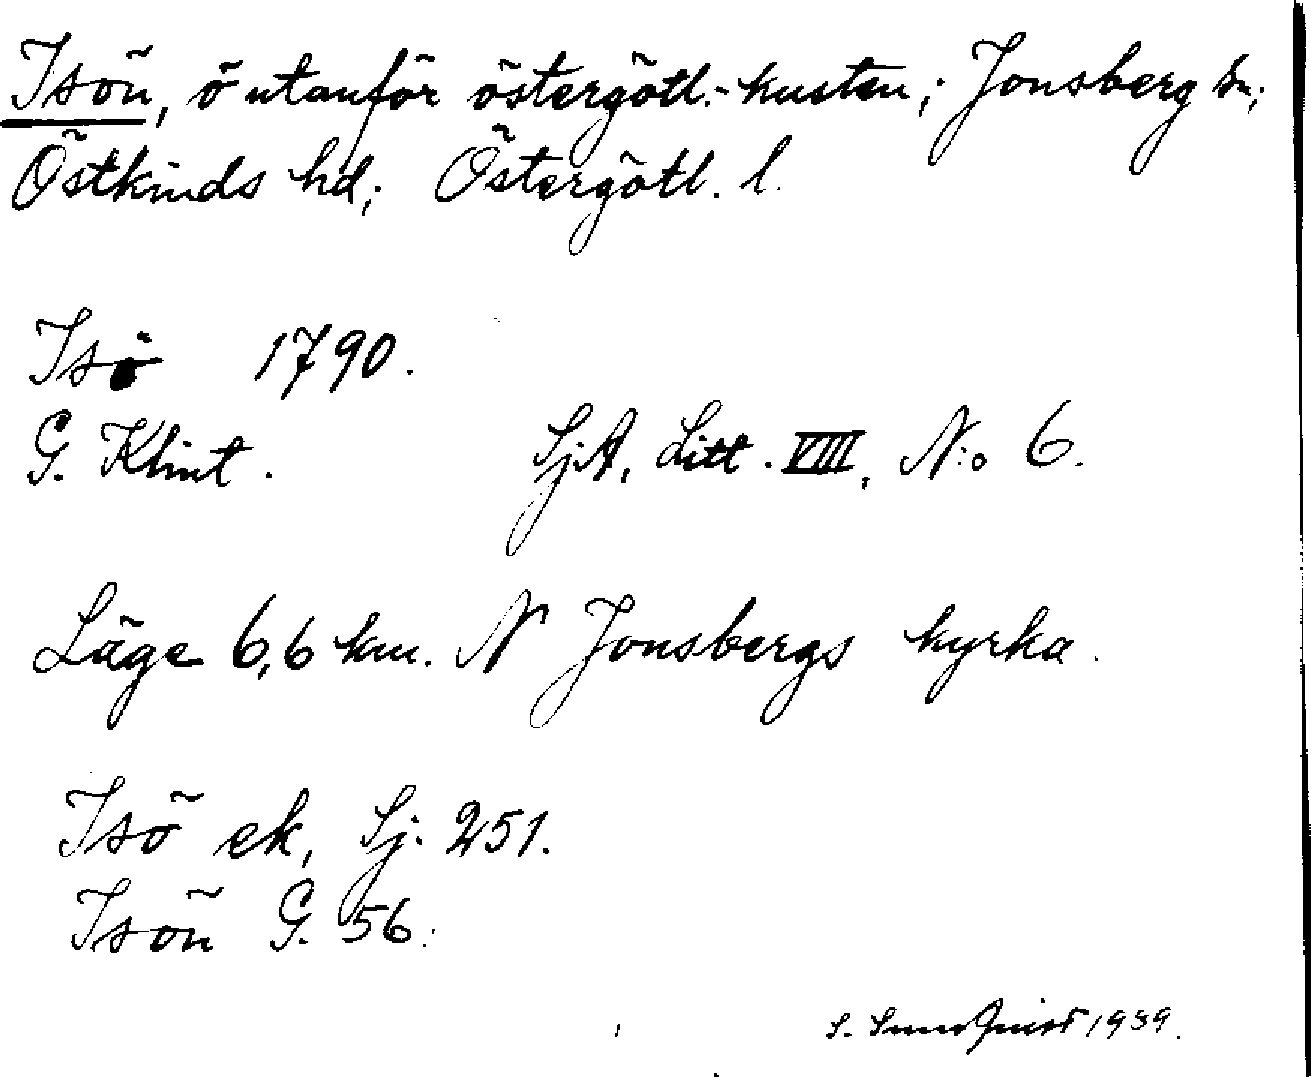 Isön, ö utanför östergötl.-kusten; Jonsberg sn;
Östkinds hd; Östergötl. l.
Isö 1790.
G. Klint. SjA, Litt. VIII, N:o 6.
Läge 6,6 km. N Jonsbergs kyrka.
Isö ek, Sj. 251.
Isön G. 56.
S. Sundquist 1939.